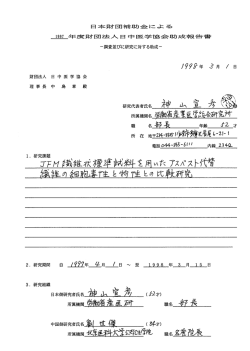 日本財団補助金による
1997 年度財団法人日中医学協会助成報告書
−調査並びに研究に対する助成−
1998 年 3 月 1 日
財団法人 日中医学協会
理事長 中島 章 殿
研究代表者氏名 神山宣彦
所属機関名 労働省産業医学総合研究所
職名 部長 年齢 52 才
所在地 〒214 川崎市多摩区長尾6-21-1
電話 044-865-6111 内線
1. 研究課題
JFM繊維状標準試料を用いたアスベスト代替
繊維の細胞毒性と物性との比較研究
2. 研究期間 自 1997年 4月 1日 〜 至 1998年 3月 15日
3. 研究組織
日本側研究者氏名 神山宣彦 (52才)
所属機関 労働省産医研 職名 部長
中国側研究者氏名 劉世傑
所属機関 北京医科大学公共衛生学院 職名 名誉院長